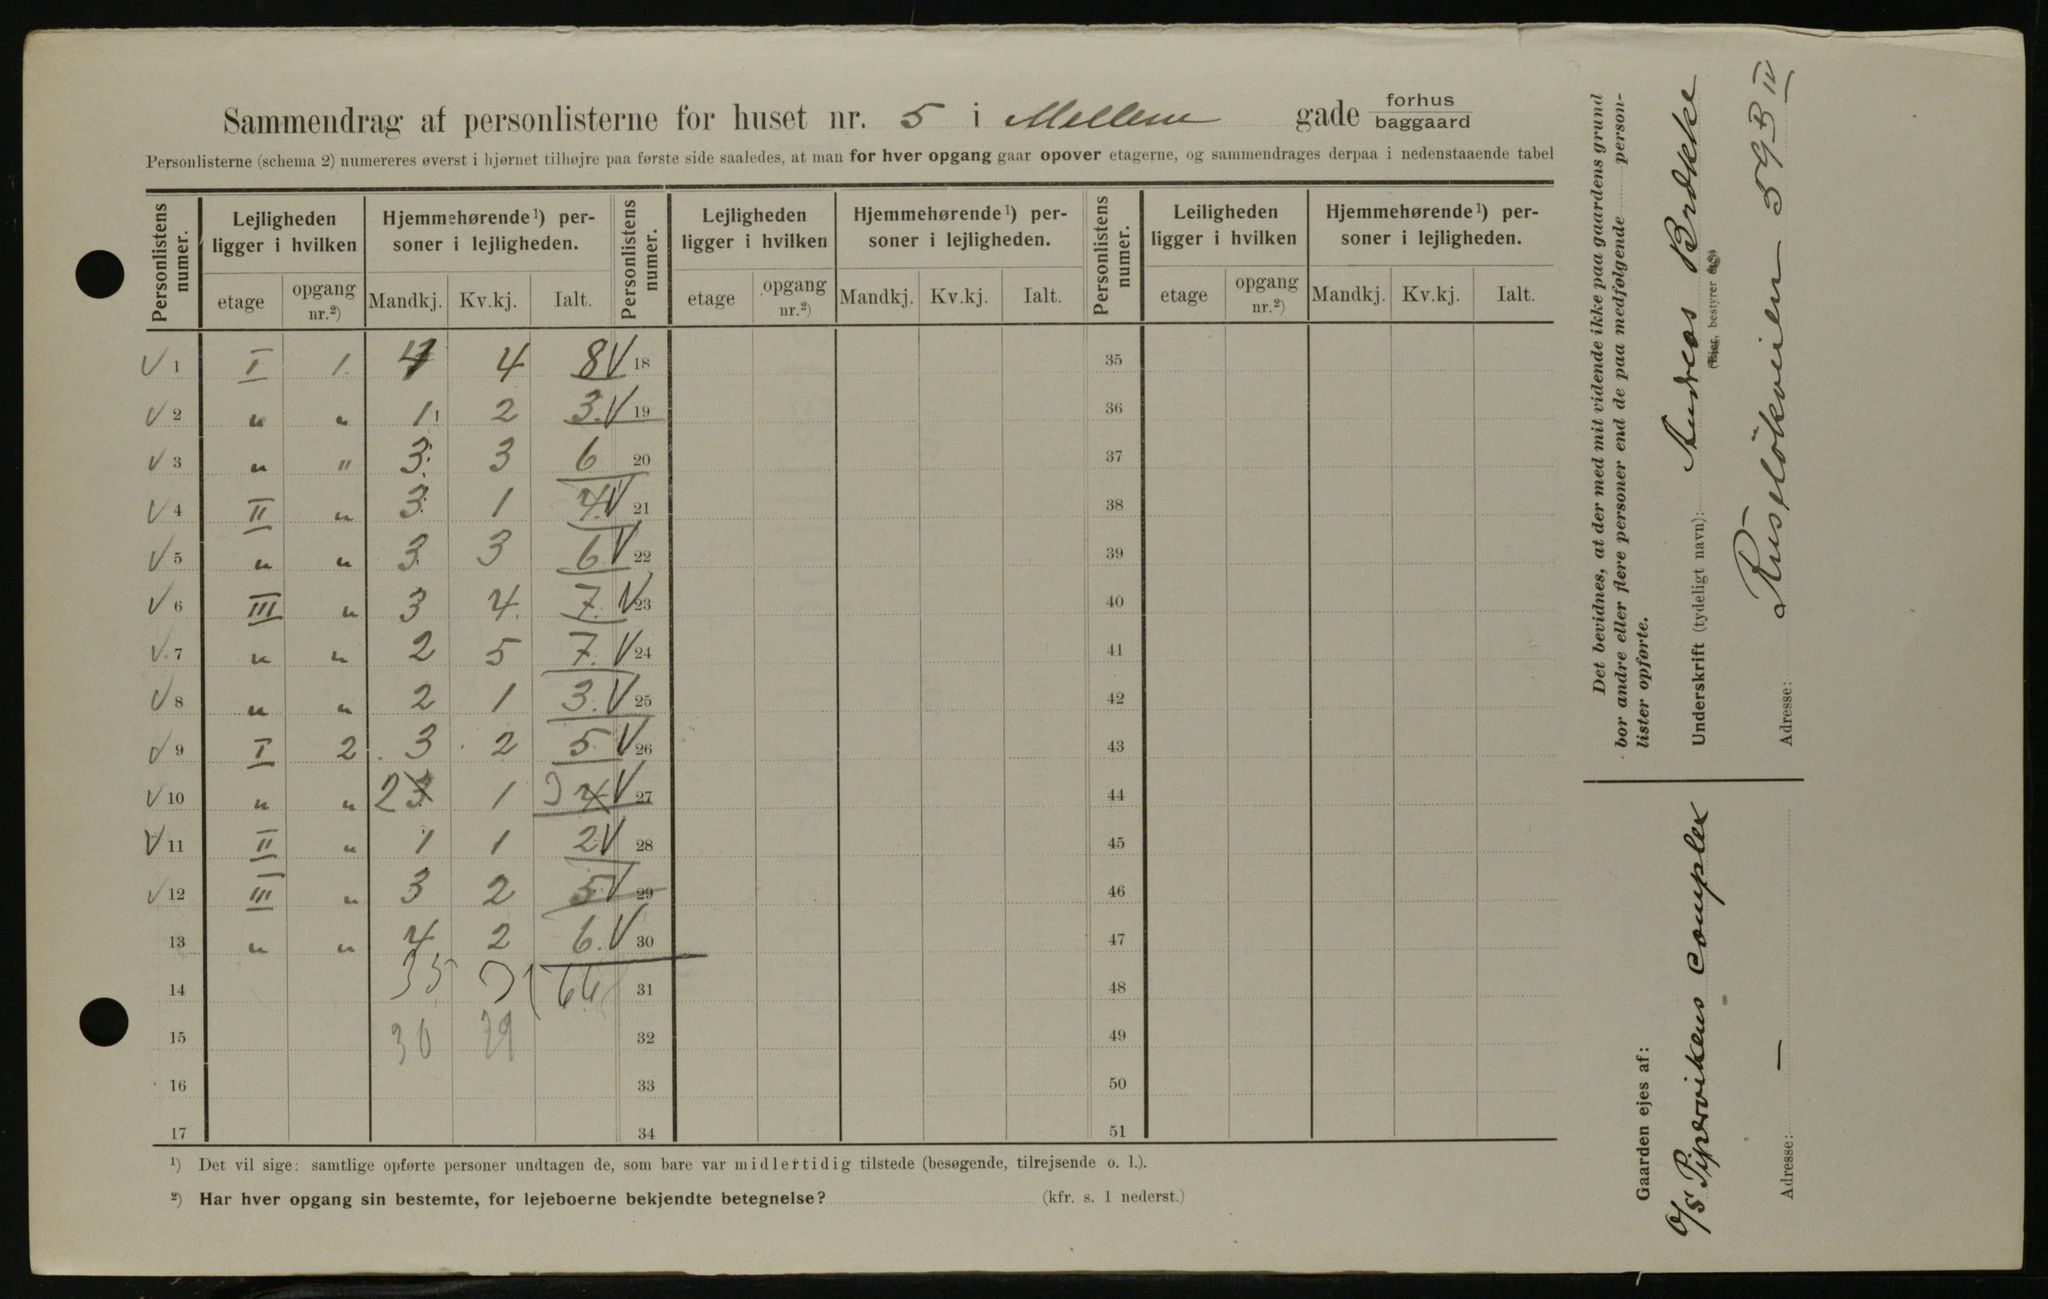 Sammendrag af personlisterne for huset nr. 5 i Mellem gade forhus baggaard
Personlisterne (schema 2) numereres øverst i hjørnet tilhøjre paa første side saaledes, at man for hver opgang gaar opover etagerne, og sammendrages derpaa i nedenstaaende tabel
Personlistens numer. Lejligheden ligger i hvilken Hjemmehørende¹) personer i lejligheden. Personlistens numer. Lejligheden ligger i hvilken Hjemmehørende¹) personer i lejligheden. Personlistens numer. Leiligheden ligger i hvilken Hjemmehørende¹) personer i lejligheden.
etage opgang nr.²) Mandkj. Kv.kj. Ialt. etage opgang nr.²) Mandkj. Kv.kj. Ialt. etage opgang nr.²) Mandkj. Kv.kj. Ialt.
V 1 I 1. 4 4 8 V 18 35
V 2 " " 1 2 3. V 19 36
V 3 " " 3 3 6 20 37
V 4 II " 3 1 4. V 21 38
V 5 " " 3 3 6 V 22 39
V 6 III " 3 4. 7. V 23 40
V 7 " " 2 5 7. V 24 41
V 8 " " 2 1 3. V 25 42
V 9 I 2 3 2 5 V 26 43
V 10 " " 2 3 1 3 4 V 27 44
V 11 II " 1 1 2 V 28 45
V 12 III " 3 2 5 V 29 46
13 " " 4 2 6. V 30 47
14 35 31 66 31 48
15 30 29 32 49
16 33 50
17 34 51
¹) Det vil sige: samtlige opførte personer undtagen de, som bare var midlertidig tilstede (besøgende, tilrejsende o. l.).
²) Har hver opgang sin bestemte, for lejeboerne bekjendte betegnelse? (kfr. s. 1 nederst.)
Det bevidnes, at der med mit vidende ikke paa gaardens grund
bor andre eller flere personer end de paa medfølgende personlister opførte.
Underskrift (tydeligt navn): Andreas Brække
(Eier, bestyrer
Adresse: Ruseløkveien 59 B IV
Gaarden ejes af:
A/S Pipervikens Complex
Adresse: —